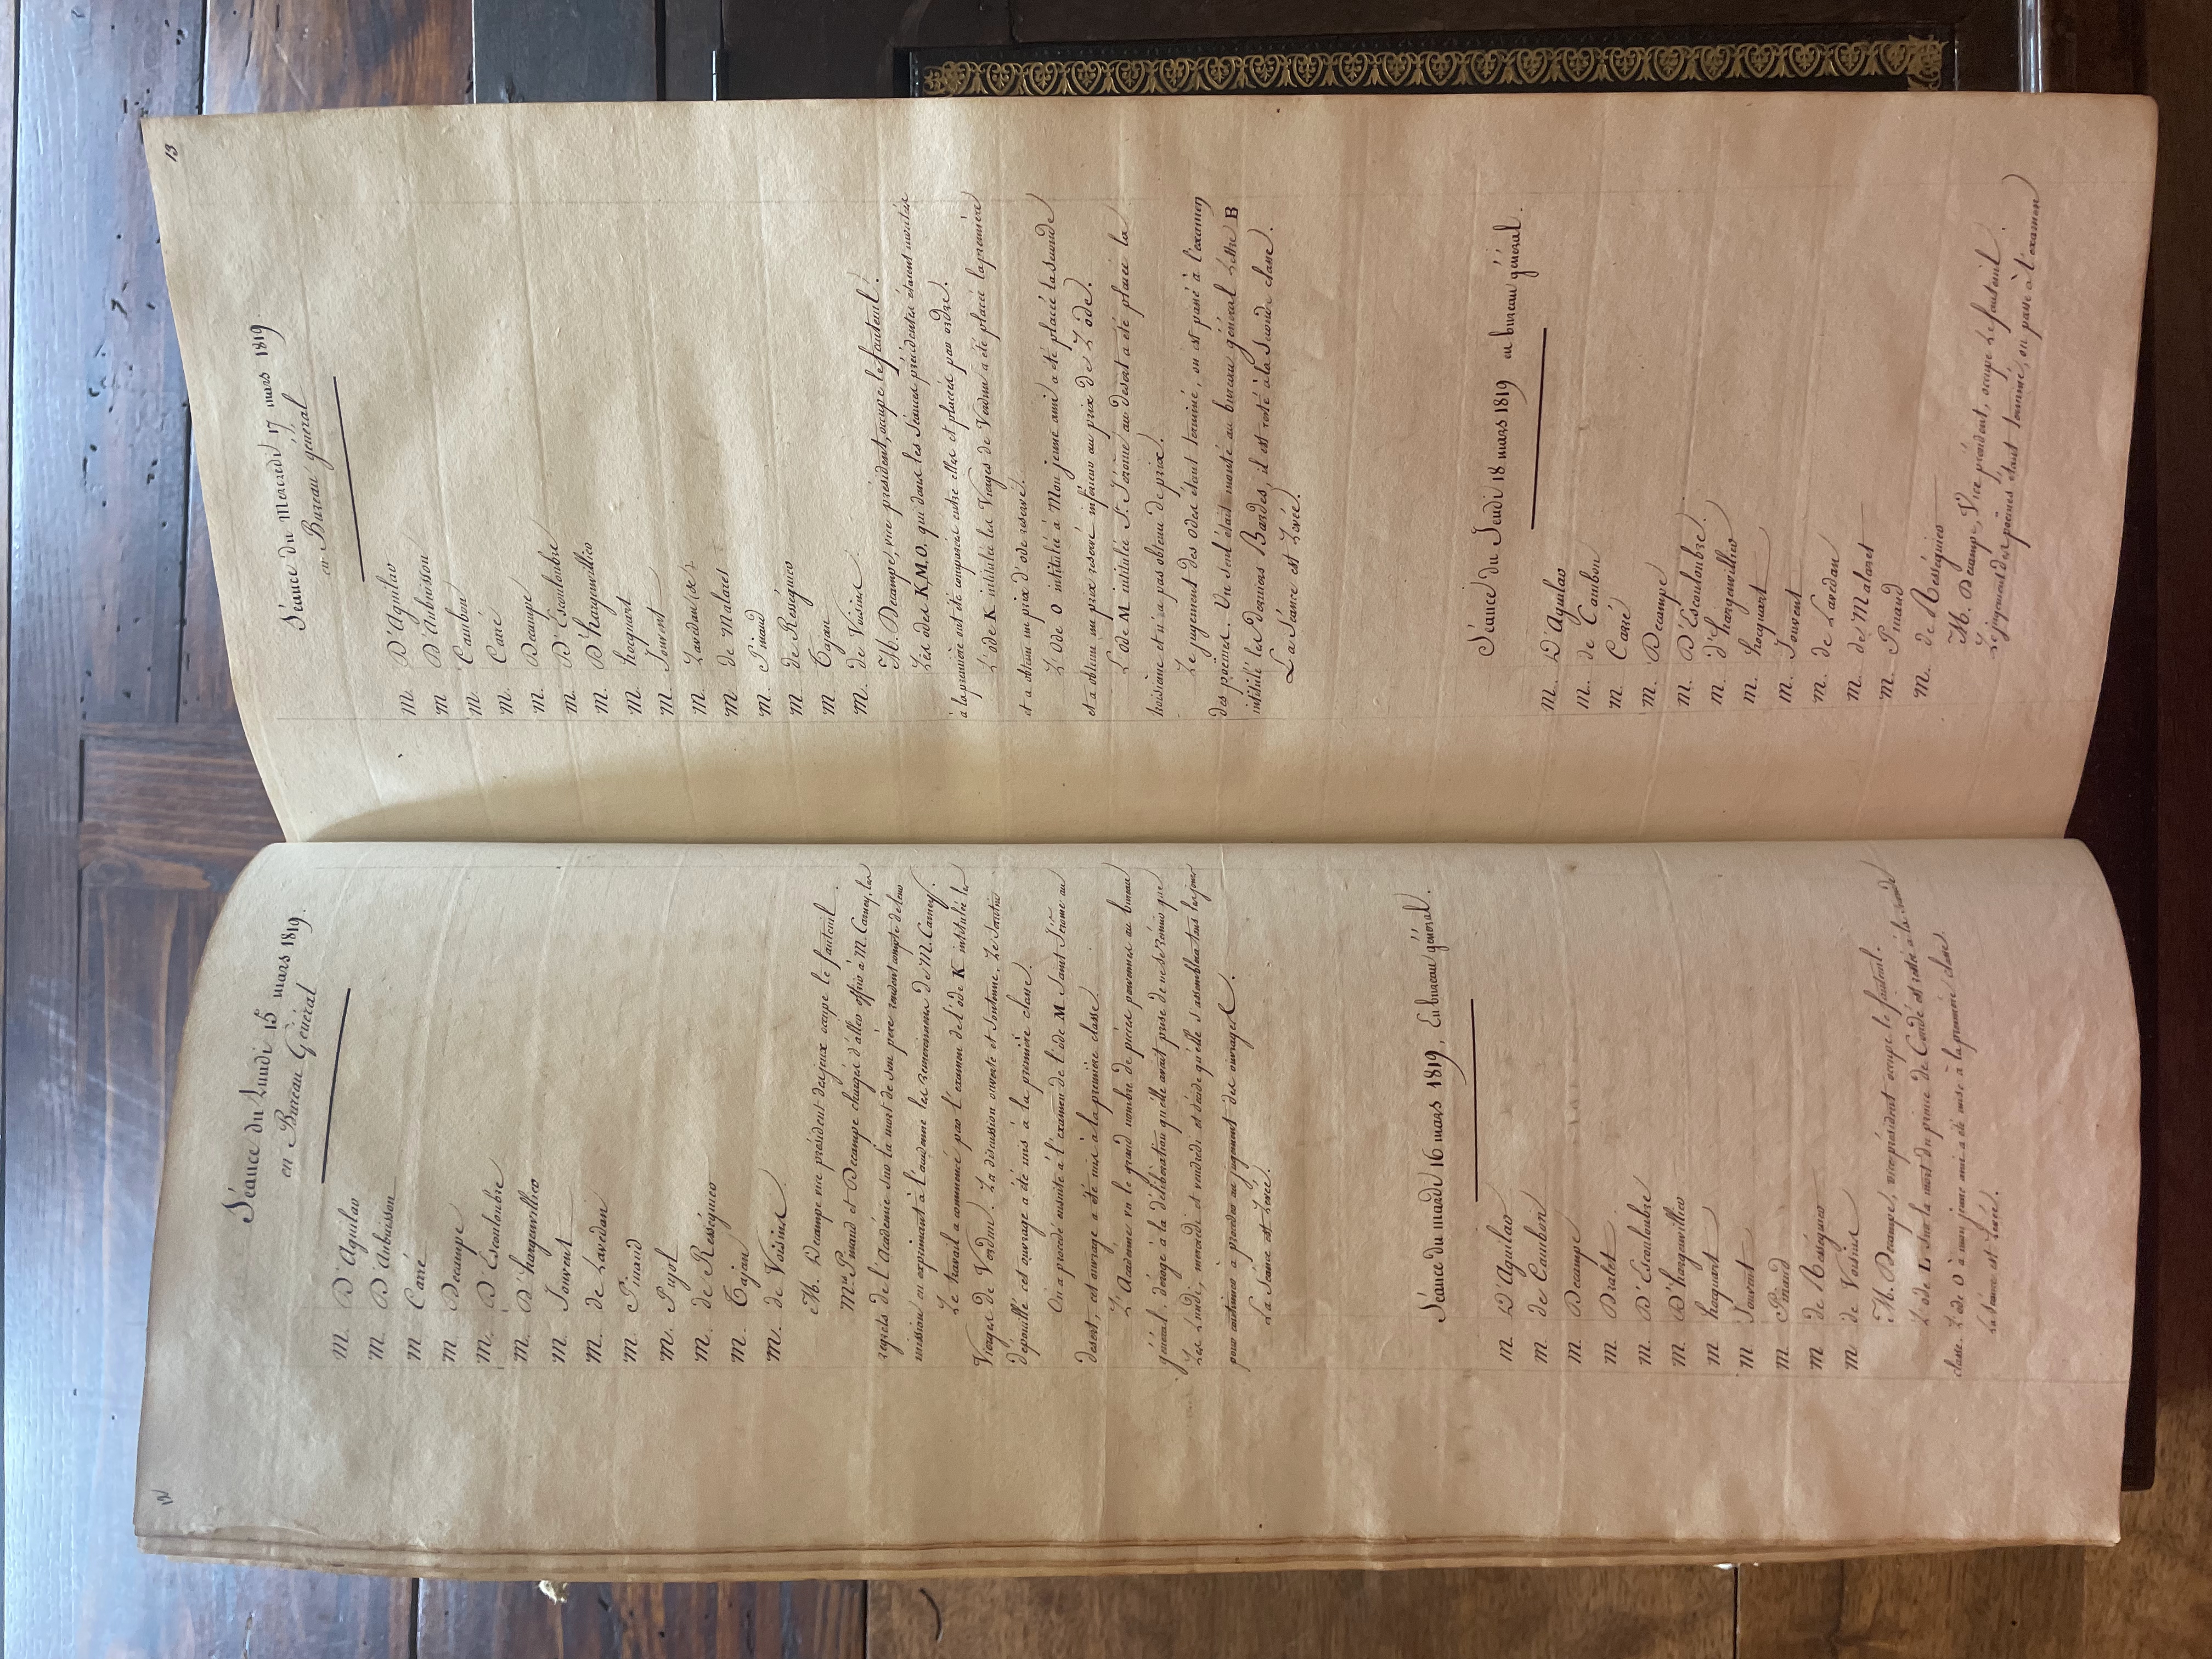 12
Séance du Lundi 15 mars 1819.
en Bureau Général
M. D'Aguilar
M. D'Aubuisson
M. Carré
M. Decampe
M. D'Escouloubre
M. D'hargenvillier
M. Jouvent
M. de Lavedan
M. Pinaud
M. Pujol
M. de Rességuier
M. Tajan
M. de Voisins
M. Decampe vice président des jeux occupe le fauteuil.
Mrs Pinaud et Decampe chargés d'aller offrir à M. Carney, les
regrets de l'Académie sur la mort de son père rendent compte de leur
mission en exprimant à l'académie les remercimens de M. Carney.
Le travail a commencé par l'examen de l'ode K intitulée les
Vierges de Verdun. La discussion ouverte et soutenue, le scrutin
dépouillé cet ouvrage a été mis à la première classe.
On a procédé ensuite à l'examen de l'ode M Saint Jérôme au
desert, cet ouvrage a été mis à la première classe.
L'Académie vu le grand nombre de pièces parvenues au bureau
général, déroge à la délibération qu'elle avait prise de ne se réunir que
les Lundi, mercredi et vendredi et décide qu'elle s'assemblera tous les jours
pour continuer à procéder au jugement des ouvrages.
La Séance est Levée.
Séance du mardi 16 mars 1819, En bureau général.
M. D'Aguilar
M. de Cambon
M. Decampe
M. Dralet
M. D'Escouloubre
M. D'hargenvillier
M. hocquart
M. Jouvent
M. Pinaud
M. de Rességuier
M. de Voisins
M. Decampe, vice président occupe le fauteuil.
L'ode L sur la mort du prince de Condé est restée à la seconde
classe. L'ode O à mon jeune ami a été mise à la première classe.
La séance est Levée.
13
Séance du Mercredi 17 mars 1819.
en Bureau général
M. D'Aguilar
M. D'Aubuisson
M. Cambon
M. Carré
M. Decampe
M. D'Escouloubre
M. D'hargenvillier
M. hocquart
M. Jouvent
M. Lavedan (de)
M. de Malaret
M. Pinaud
M. de Rességuier
M. Tajan
M. de Voisins
M. Decampe, vice président, occupe le fauteuil.
Les odes K, M, O. qui dans les séances précédentes étaient montées
à la première ont été comparées entre elles et placées par ordre.
L'ode K intitulée les Vierges de Verdun a été placée la première
et a obtenu un prix d'ode réservé.
L'ode O intitulée à Mon jeune ami a été placée la seconde
et a obtenu un prix réservé inférieur au prix de L'ode.
L'ode M intitulée St. Jérome au desert a été placée la
troisième et n'a pas obtenu de prix.
Le jugement des odes étant terminé, on est passé à l'examen
des poëmes. Un seul était monté au bureau général Lettre B
intitulé les derniers Bardes, il est resté à la seconde classe.
La Séance est Levée.
Séance du Jeudi 18 mars 1819 en bureau général.
M. D'Aguilar
M. de Cambon
M. Carré
M. Decampe
M. D'Escouloubre
M. d'hargenvillier
M. hocquart
M. Jouvent
M. de Lavedan
M. de Malaret
M. Pinaud
M. de Rességuier
M. Decampe, Vice président, occupe le fauteuil.
Le jugement des poëmes étant terminé, on passe à l'examen